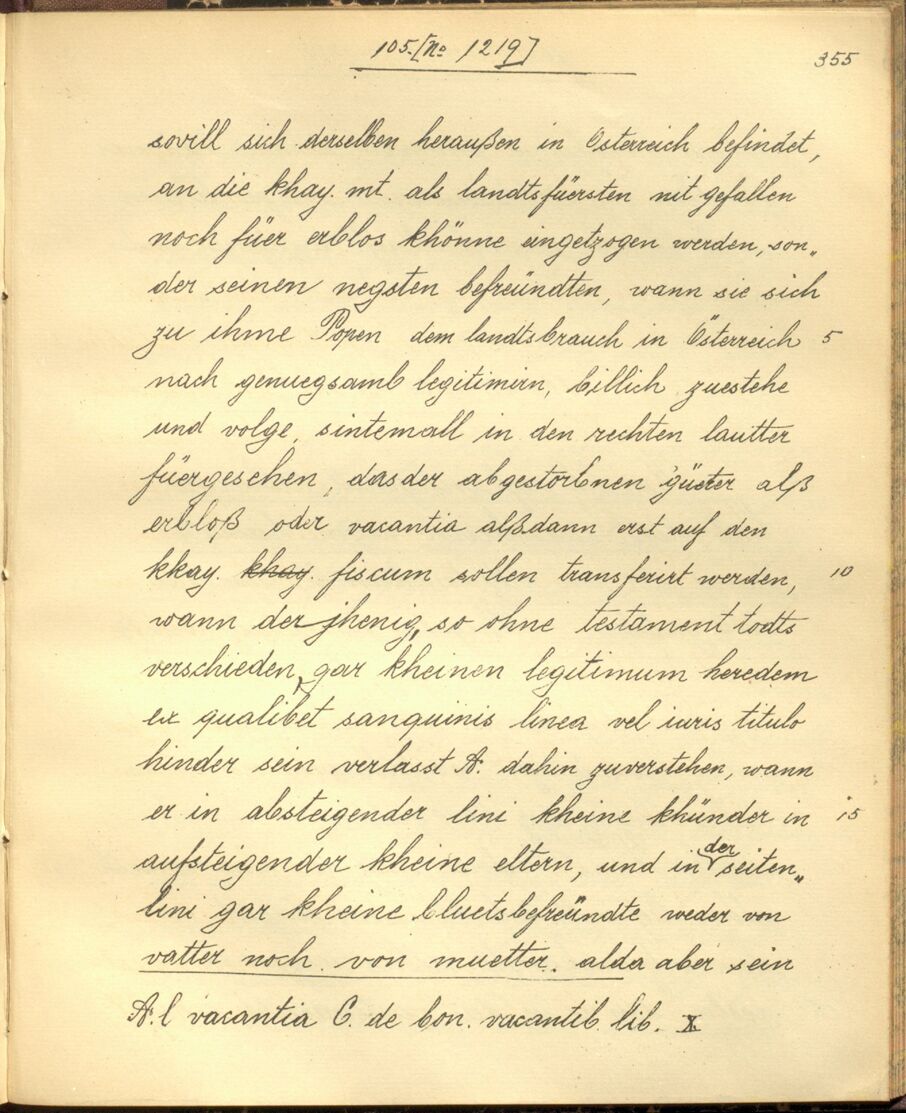 105. [No 1219]
355
sovill sich derselben heraußen in Österreich befindet,
an die khay. mt. als landtsfüersten nit gefallen
noch füer erblos khönne eingetzogen werden, son„
der seinen negsten befreündten, wann sie sich
zu ihme Popen dem landtsbrauch in Österreich 5
nach genuegsamb legitimirn, billich zuestehe
und volge, sintemall in den rechten lautter
füergesehen, das der abgestorbnen güeter alß
erbloß oder vacantia alßdann erst auf den
kkay. khay. fiscum sollen transferirt werden, 10
wann der jhenig, so ohne testament todts
verschieden, gar kheinen legitimum heredem
ex qualibet sanguinis linea vel iuris titulo
hinder sein verlasst A: dahin zuverstehen, wann
er in absteigender lini kheine khünder in 15
aufsteigender kheine eltern, und in der seiten„
lini gar kheine bluetsbefreündte weder von
vatter noch von muetter. alda aber sein
A: l vacantia C. de bon. vacantib. lib. X